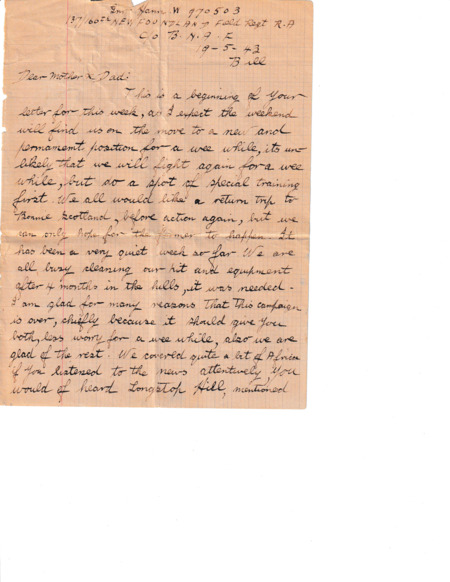 Gnr. Hann. W 970503
137/60th NEWFOUNDLAND Field Regt R.A
C/o B.N.A.F
19-5-43
Bill
Dear Mother & Dad:
This is a beginning of your
letter for this week, as I expect the weekend
will find us on the move to a new and
permanemt position for a wee while, its un-
likely that we will fight again for a wee
while, but do a spot of special training
first. We all would like a return trip to
Bonnie Scotland, before action again, but we
can only hope for the former to happen. It
has been a very quiet week so far We are
all busy cleaning our kit and equipment
after 4 months in the hills, it was needed.
I am glad for many reasons that this campaign
is over, chiefly because it should give you
both, less worry for a wee while, also we are
glad of the rest. We covered quite a bit of Africa
if you listened to the news attentively you
would of heard Longstop Hill, mentioned